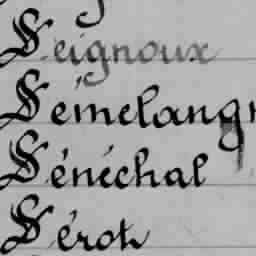 Seignoux
Sémelang
Sénéchal
Séroh